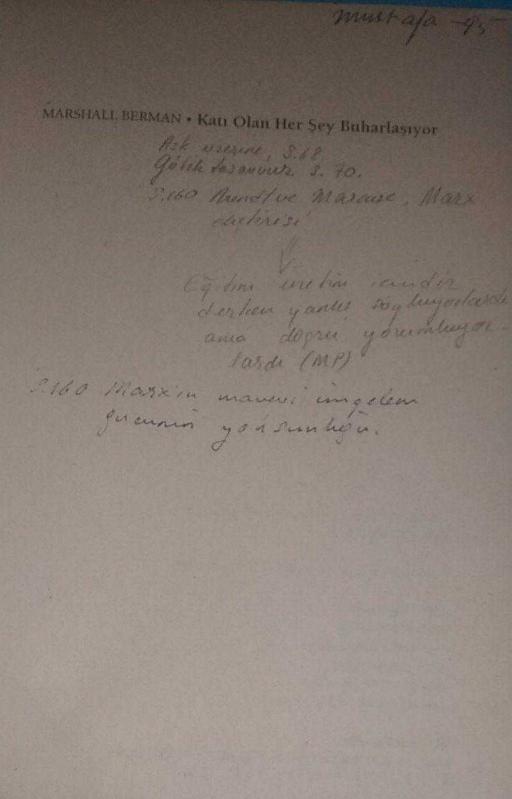 Mustafa - 95
MARSHALL BERMAN • Katı Olan Her Şey Buharlaşıyor
Aşk üzerine, S.68
S. 70.
S.160 Arendt ve Marcuse, Marx
eleştirisi
Eğitim üretim içindir
derken yanlış söylüyorlardı
ama doğru yorumluyor-
lardı (MP)
S.160 Marx'ın manevi imgelem
gücünün yoksunluğu.